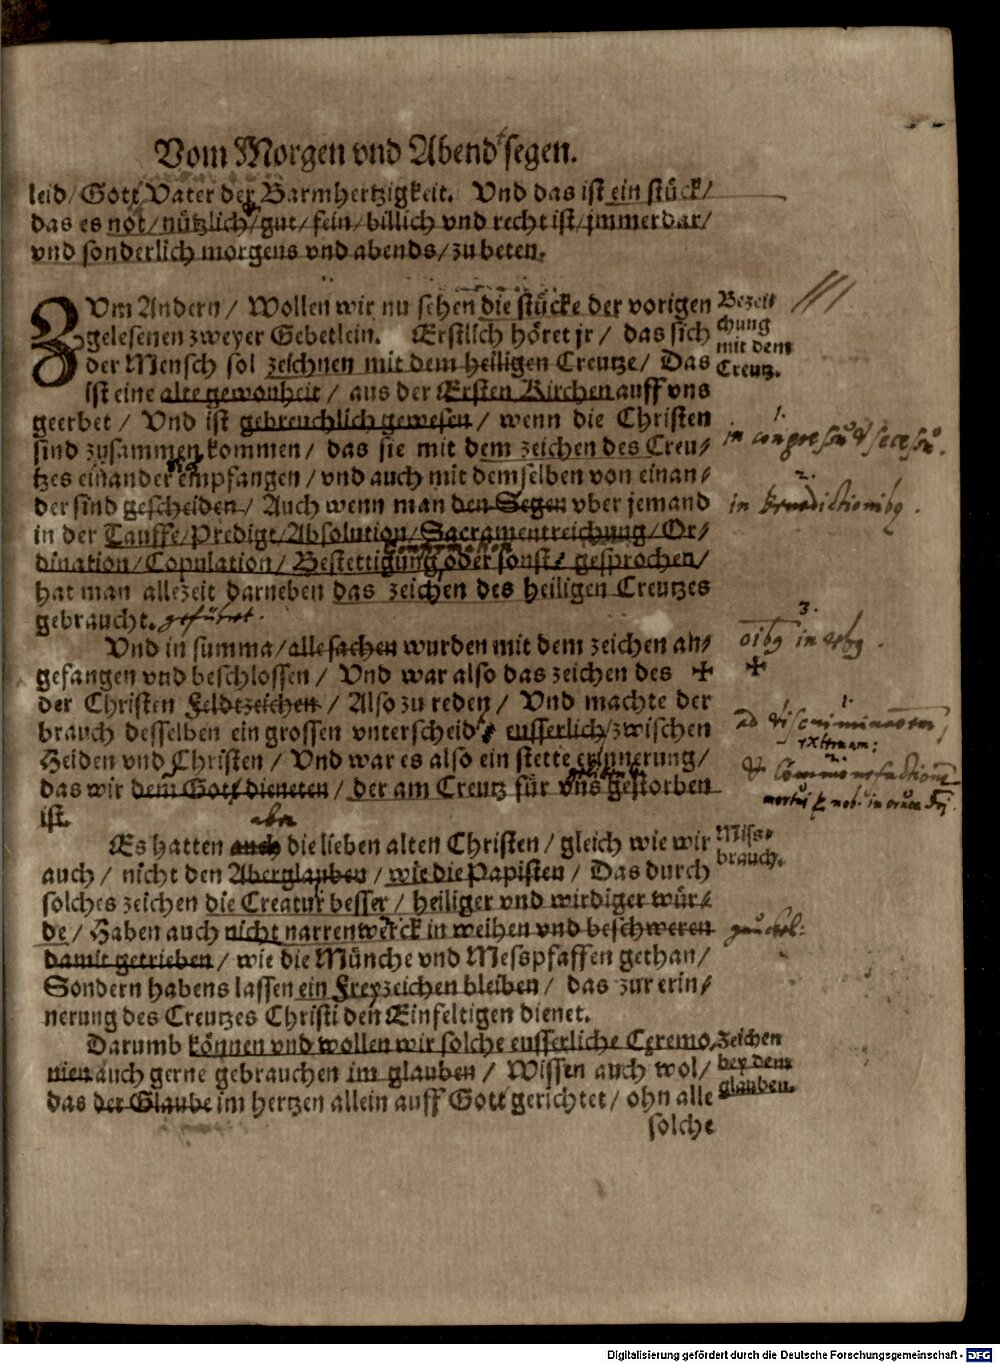 Vom Morgen vnd Abend segen.
leid/ Gott Vater der Barmhertzigkeit. Vnd das ist ein stück/
das es not/ nützlich/ gut/ fein/ billich vnd recht ist/ jmmerdar/
vnd sonderlich morgens vnd abends/ zu beten.
ZVm Andern/ Wollen wir nu sehen die stücke der vorigen
gelesenen zweyer Gebetlein. Erstlich höret jr/ das sich
der Mensch sol zeichnen mit dem heiligen Creutze/ Das
ist eine alte gewonheit/ aus der Ersten Kirchen auff vns
Bezeichung
mit dem
Creutz.
geerbet/ Vnd ist gebreuchlich gewesen/ wenn die Christen
sind zusammen kommen/ das sie mit dem zeichen des Creu/
tzes einander empfangen/ vnd auch mit demselben von einan/
der sind gescheiden/ Auch wenn man den Segen vber jemand
in der Tauffe/ Predigt/ Absolution/ Sacramentreichung/ Or/
dination/ Copulation/ Bestettigung/ oder sonst/ gesprochen/
hat man allezeit darneben das zeichen des heiligen Creutzes
gebraucht. geführet.
1.
2.
in benedictionibq.
3.
oibq in rebq.
Vnd in summa/ alle sachen wurden mit dem zeichen an/
gefangen vnd beschlossen/ Vnd war also das zeichen des ✠
der Christen Feldtzeichen/ Also zu reden/ Vnd machte der
brauch desselben ein grossen vnterscheid/ eusserlich/ zwischen
Heiden vnd Christen/ Vnd war es also ein stette erinnerung/
das wir dem Gott dieneten/ der am Creutz für vns gestorben
ist.
✠
aber
Es hatten auch die lieben alten Christen/ gleich wie wir
auch/ nicht den Aberglauben/ wie die Papisten/ Das durch
solches zeichen die Creatur besser/ heiliger vnd wirdiger wür/
de/ Haben auch nicht narrenwerck in weihen vnd beschweren
damit getrieben/ wie die Münche vnd Messpfaffen gethan/
Sondern habens lassen ein Freyzeichen bleiben/ das zur erin/
nerung des Creutzes Christi den Einfeltigen dienet.
Miss-
brauch.
Darumb können vnd wollen wir solche eusserliche Ceremo/
nien auch gerne gebrauchen im glauben/ Wissen auch wol/
das der Glaube im hertzen allein auff Gott gerichtet/ ohn alle
solche
Zeichen
bey dem
glauben.
Digitalisierung gefördert durch die Deutsche Forschungsgemeinschaft - DFG